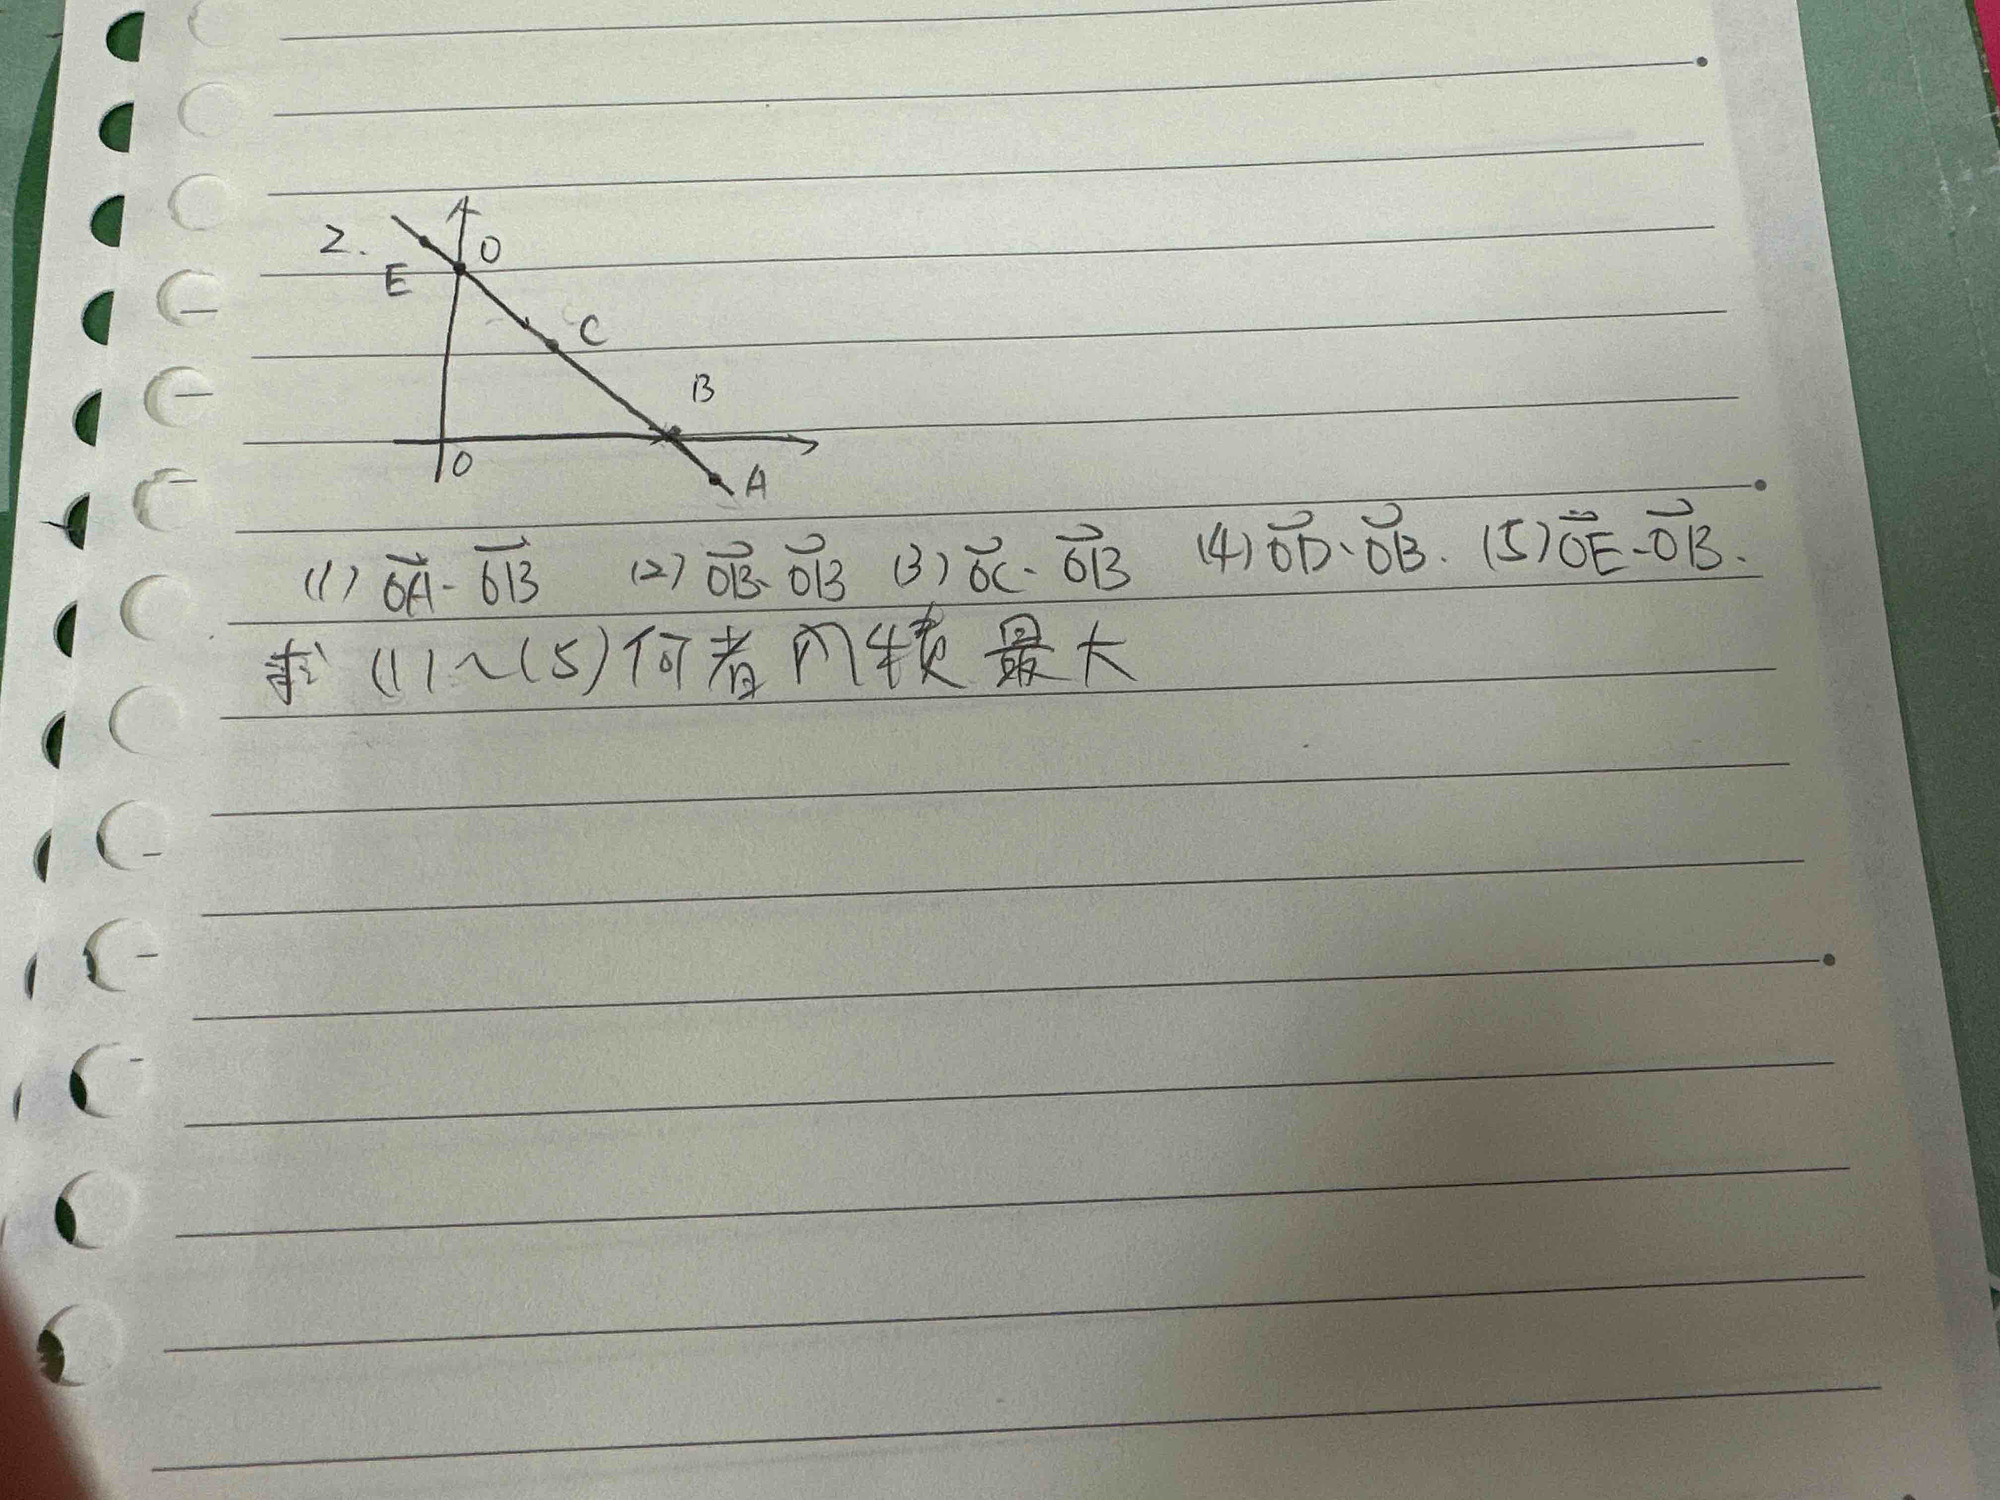 2.
O
E
C
B
O
A
(1) OA⃗·OB⃗ (2) OB⃗·OB⃗ (3) OC⃗·OB⃗ (4) OD⃗·OB⃗. (5) OE⃗·OB⃗.
求 (1)~(5) 何者內積最大